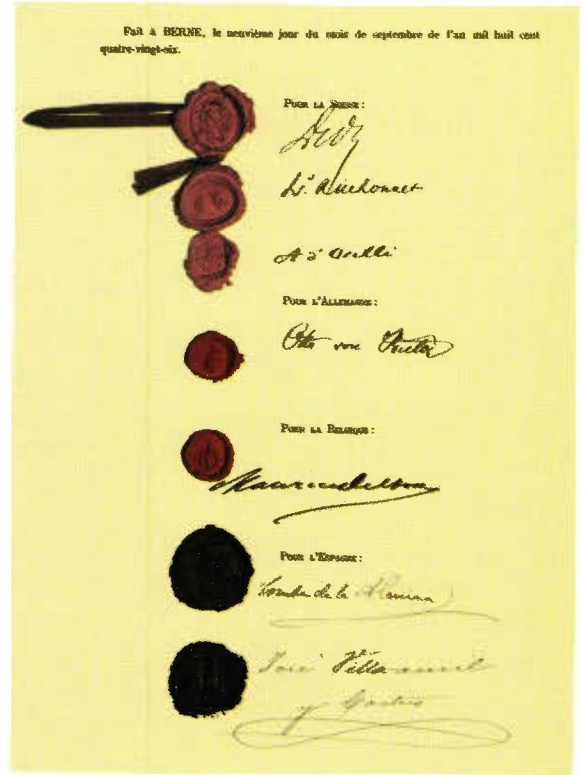 Fait à BERNE, le neuvième jour du mois de septembre de l'an mil huit cent
quatre-vingt-six.
POUR LA SUISSE:
Droz
L. Ruchonnet
A d'Orelli
POUR L'ALLEMAGNE:
Otto von
POUR LA BELGIQUE:
Maurice Delfosse
POUR L'ESPAGNE:
Conde de la Almina
José Villa-amil
y Castro